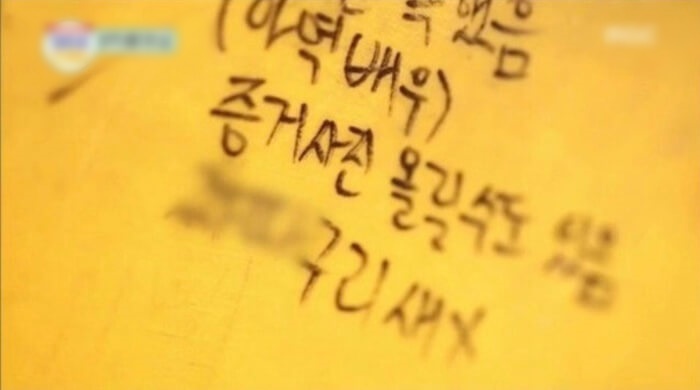 했음
(아역배우)
증거사진 올릴수도 있음
구리새x